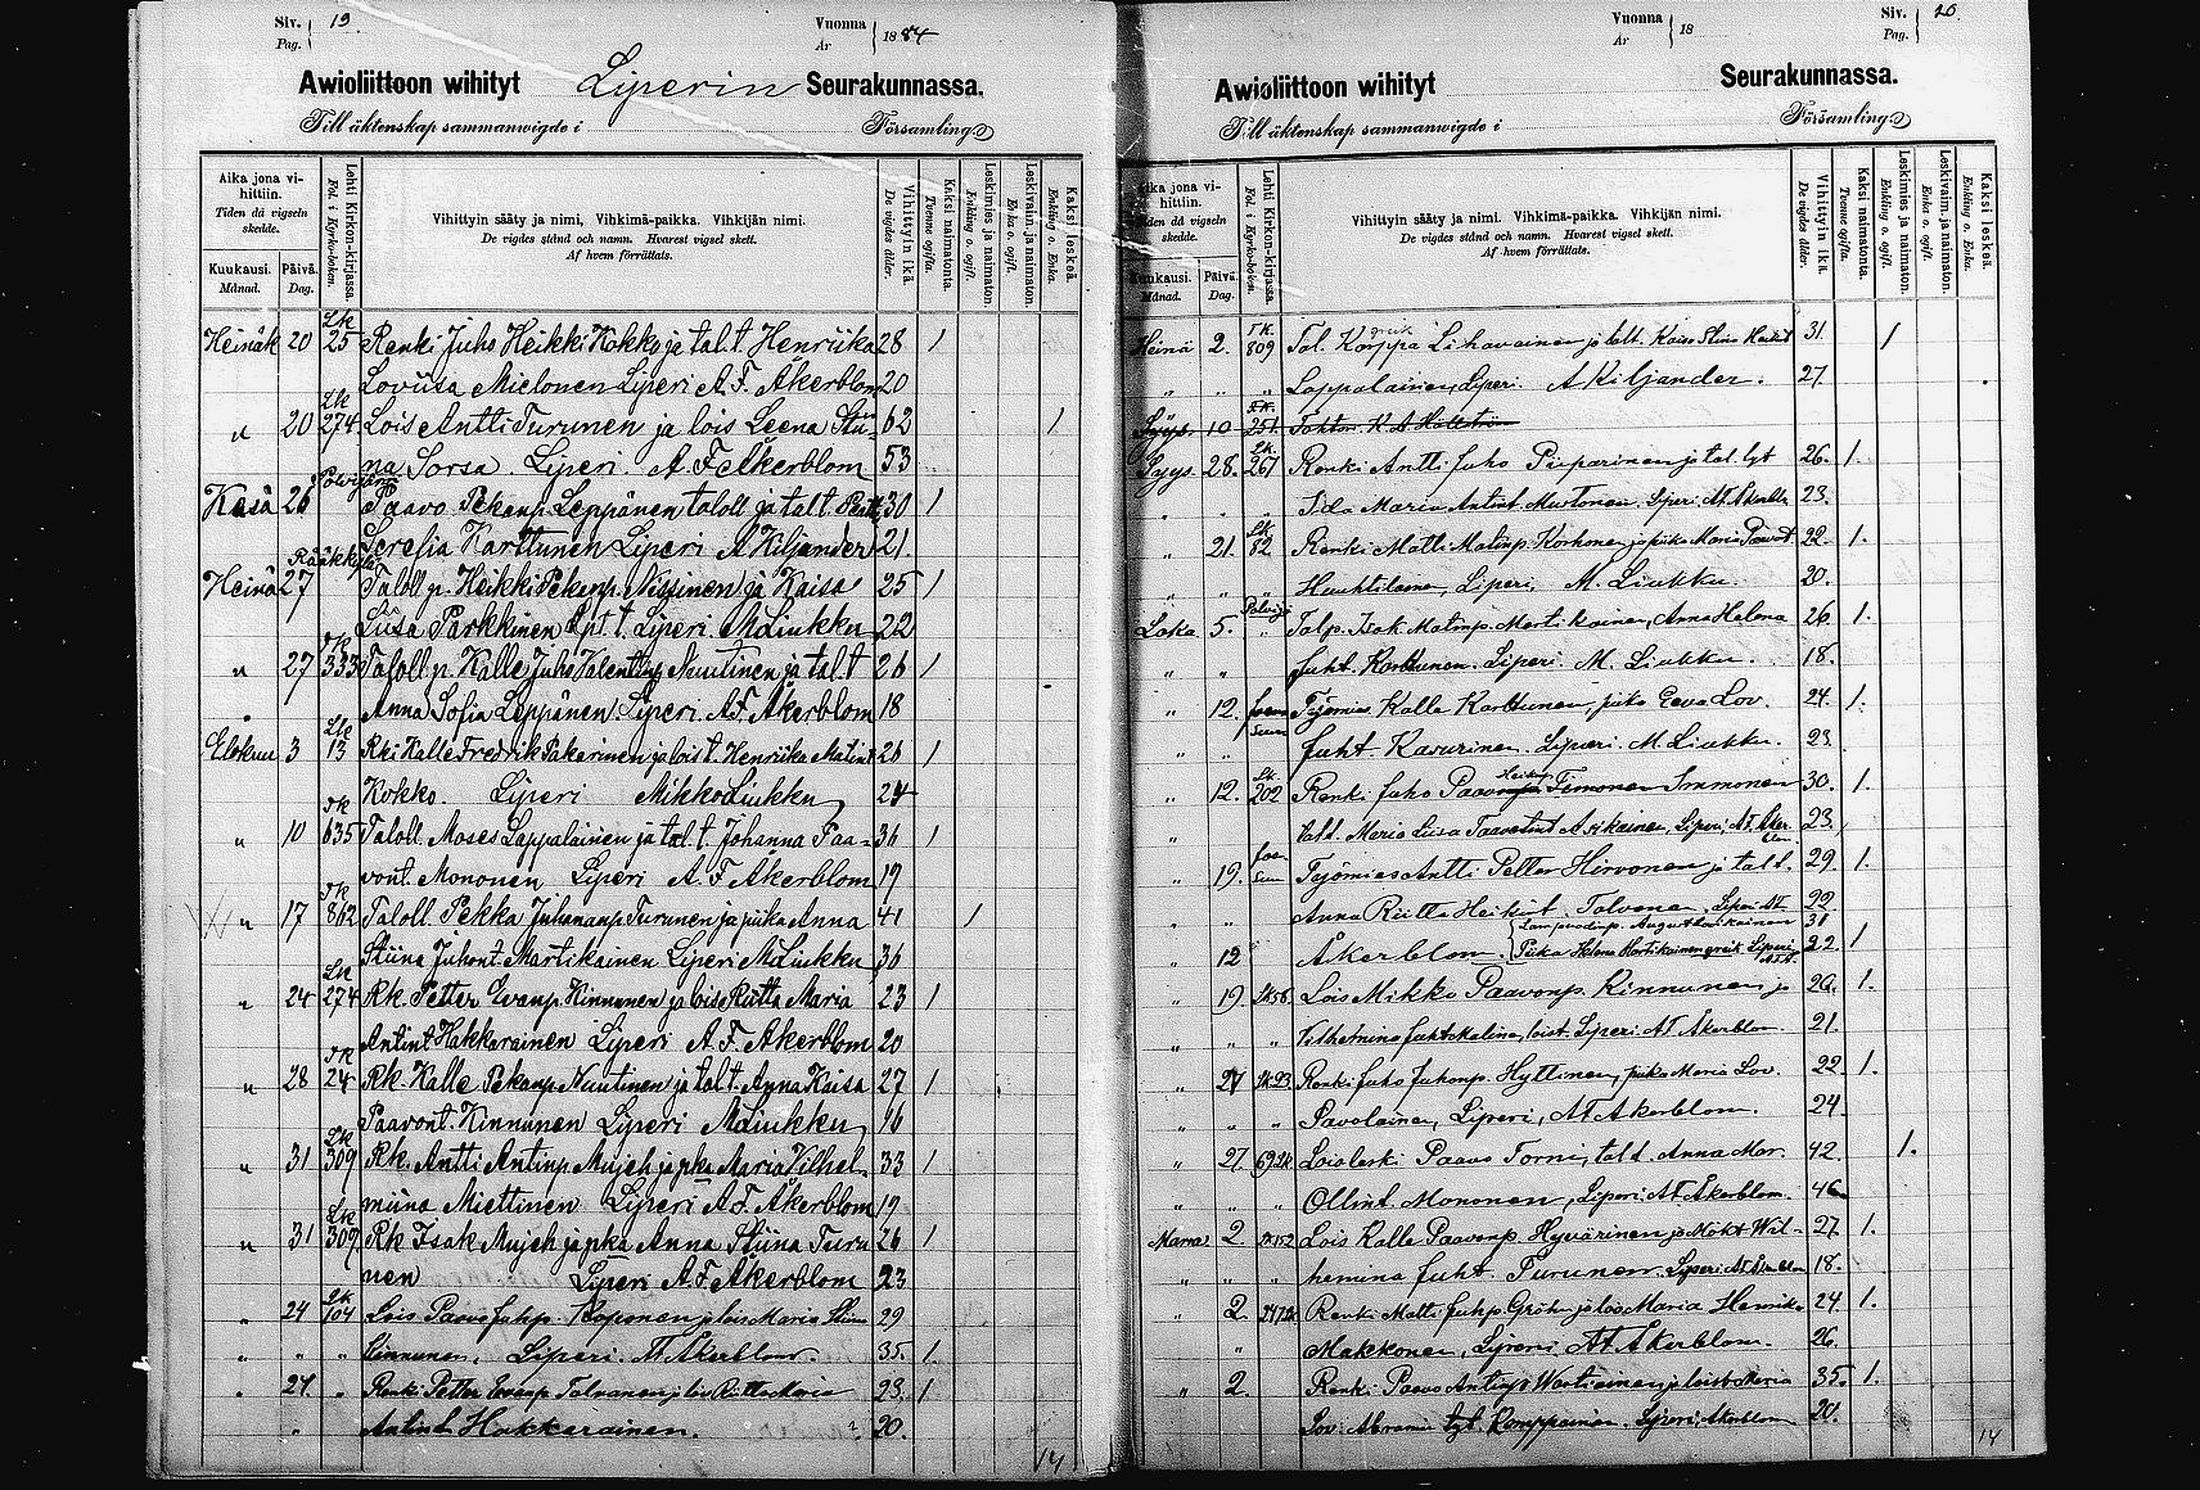 Siv. 19
Pag.
Vuonna
År 1884
Awioliittoon wihityt Liperin Seurakunnassa.
Till äktenskap sammanwigde i Församling.
Aika jona vihittiin.
Tiden då vigseln skedde.
Kuukausi. Månad.
Päivä. Dag.
Lehti Kirkon-kirjassa.
Fol. i Kyrko-boken.
Vihittyin sääty ja nimi, Vihkimä-paikka. Vihkijän nimi.
De vigdes stånd och namn. Hvarest vigsel skett.
Af hvem förrättats.
Vihittyin ikä.
De vigdes ålder.
Kaksi naimatonta.
Tvenne ogifta.
Leskimies ja naimaton.
Enkling o. ogift.
Leskivaim. ja naimaton.
Enka o. ogift.
Kaksi leskeä.
Enkling o. Enka.
Heinäk 20 Lk 25 Renki Juho Heikki Kokko ja tal.t. Henriika 28 1
Loviisa Mielonen Liperi A.F. Åkerblom 20
" 20 Lk 274 Lois Antti Turunen ja lois Leena Stii= 62 1
na Sorsa. Liperi. A.F. Åkerblom 53
Kesä 26 Polvijärvi Paavo Pekanp. Leppänen taloll ja tal.t. 30 1
Serefia Karttunen Liperi A Kiljander 21.
Heinä 27 Rääkkylä Taloll p. Heikki Pekanp. Nissinen ja Kaisa 25 1
Liisa Parkkinen Liperi. M Liukku 22
" 27 Tk 333 Taloll. p. Kalle Juho Valentinp Nuutinen ja tal.t 26 1
Anna Sofia Leppänen Liperi. A.F. Åkerblom 18
Elokuu 3 Lk 13 Rki Kalle Fredrik Pakarinen ja lois t. Henriika Matint 26 1
Kokko. Liperi Mikko Liukku 24
" 10 Tk 635 Taloll. Moses Lappalainen ja tal.t. Johanna Paa= 36 1
vont. Mononen Liperi A.F Åkerblom 19
" 17 Tk 862 Taloll. Pekka Juhananp Turunen ja piika Anna 41 1
Stiina Juhont. Martikainen Liperi M Liukku 36
" 24 Lk 274 Rk. Petter Evanp. Kinnunen ja lois Riitta Maria 23 1
Antint Hakkarainen Liperi A.F. Åkerblom 20
" 28 Tk 24 Rk. Kalle Pekanp Nuutinen ja tal.t. Anna Kaisa 27 1
Paavont. Kinnunen Liperi M Liukku 16
" 31 Lk 309 Rk. Antti Antinp. Mujeh ja pka Maria Vilhel= 33 1
miina Miettinen Liperi A.F. Åkerblom 19
" 31 Lk 309 Rk Isak Mujeh ja pka Anna Stiina Turu 26 1
nen Liperi A.F. Åkerblom 23
" 24 Lk 104 Lois Paavo Juhp. Koponen ja lois Maria Stiina 29
" " " Kinnunen, Liperi. AF Åkerblom. 35. 1.
" 24. " Renki Petter Evanp Tolvanen ja lois Riitta Maria 23. 1
" Antint Hakkarainen. 20.
14
Siv. 20.
Pag.
Vuonna
År 18
Awioliittoon wihityt Seurakunnassa.
Till äktenskap sammanwigde i Församling.
Aika jona vihittiin.
Tiden då vigseln skedde.
Kuukausi. Månad.
Päivä. Dag.
Lehti Kirkon-kirjassa.
Fol. i Kyrko-boken.
Vihittyin sääty ja nimi. Vihkimä-paikka. Vihkijän nimi.
De vigdes stånd och namn. Hvarest vigsel skett.
Af hvem förrättats.
Vihittyin ikä.
De vigdes ålder.
Kaksi naimatonta.
Leskimies ja naimaton.
Enkling o. ogift.
Leskivaim. ja naimaton.
Enka o. ogift.
Kaksi leskeä.
Enkling o. Enka.
Heinä 2. TK. 809 Tal. Korppa greik Lihavainen ja talt. Kaisa Stina 31. 1
" " " Lappalainen, Liperi. A Kiljander. 27.
Syys. 10 251. Tohtori K. A Hällström
Syys. 28. Lk. 267 Renki Antti Juho Piiparinen ja tal. tyt 26. 1.
" " " Iida Maria Antint. Mustonen. Liperi. AF. Åkerblm 23.
" 21. Lk 82 Renki Matti Matinp. Korhonen ja piika Maria Paavont 22. 1.
" " " Huuhtilainen, Liperi, M. Liukku. 20.
Loka 5. Polvijä " Talp. Isak Matinp. Martikainen, Anna Helena 26. 1.
" " Juht. Karttunen. Liperi. M. Liukku. 18.
" 12. Joensuun Työmies Kalle Karttunen, piika Eeva Lov. 24. 1.
" " Juht. Kasurinen. Liperi. M. Liukku. 23.
" 12. Lk. 202 Renki Juho Paavo Heikinp Timonen Immonen 30. 1.
" talt. Maria Liisa Taavetint Asikainen, Liperi, AF. Åkerblom. 23.
" 19. Joensuun Työmies Antti Petter Hirvonen ja talt. 29. 1.
" " Anna Riitta Heikint. Tolvanen, Liperi AF. 22.
Åkerblom.
" 12 August 31 1
Piika Helena Martikainen greik. Liperi A.F.Å. 22.
" 19. Lk 56. Lois Mikko Paavonp. Kinnunen ja 20. 1.
" " " Vilhelmina Juht Malinen, loist. Liperi. AF Åkerblom. 21.
" 27 Lk 23. Renki Juho Juhonp. Hyttinen, piika Maria Lov. 22. 1.
" " " Savolainen, Liperi, AF Åkerblom. 24.
" 27. 69 Lk Loisleski Paavo Torni, tal t. Anna Mar. 42. 1.
" " " Ollint. Mononen, Liperi. AF Åkerblom. 46
Marra 2. Lk 152 Lois Kalle Paavonp. Hyvärinen ja Mökt Wil- 27. 1.
" " " hemina Juht. Turunen. Liperi. AF. Åkerblom 18.
" 2. 247 Lk Renki Matti Juhp. Gröhn ja lois Maria Henrika 24. 1.
" Makkonen, Liperi, AF Åkerblom. 26.
" 2. Renki Paavo Antinp Wartiainen ja loist Maria 35. 1.
Lov. Abramin tyt. Komppainen. Liperi, Åkerblom 20.
14